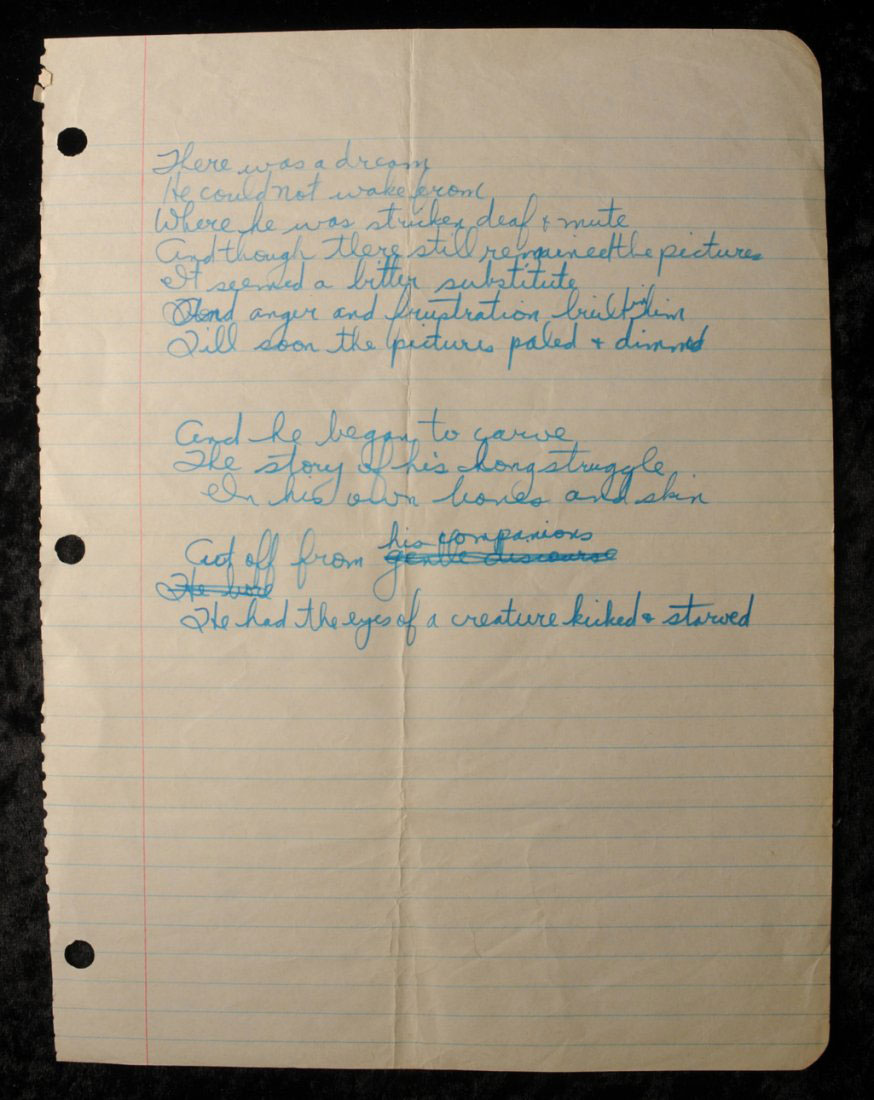 There was a dream
He could not wake from
Where he was striken deaf & mute
And though there still remained the pictures
It seemed a bitter substitute
And anger and frustration built in him
Till soon the pictures paled & dimmed
And he began to carve
The story of his long struggle
In his own bones and skin
his companions
Cut off from gentle discourse
He
He had the eyes of a creature kicked & starved